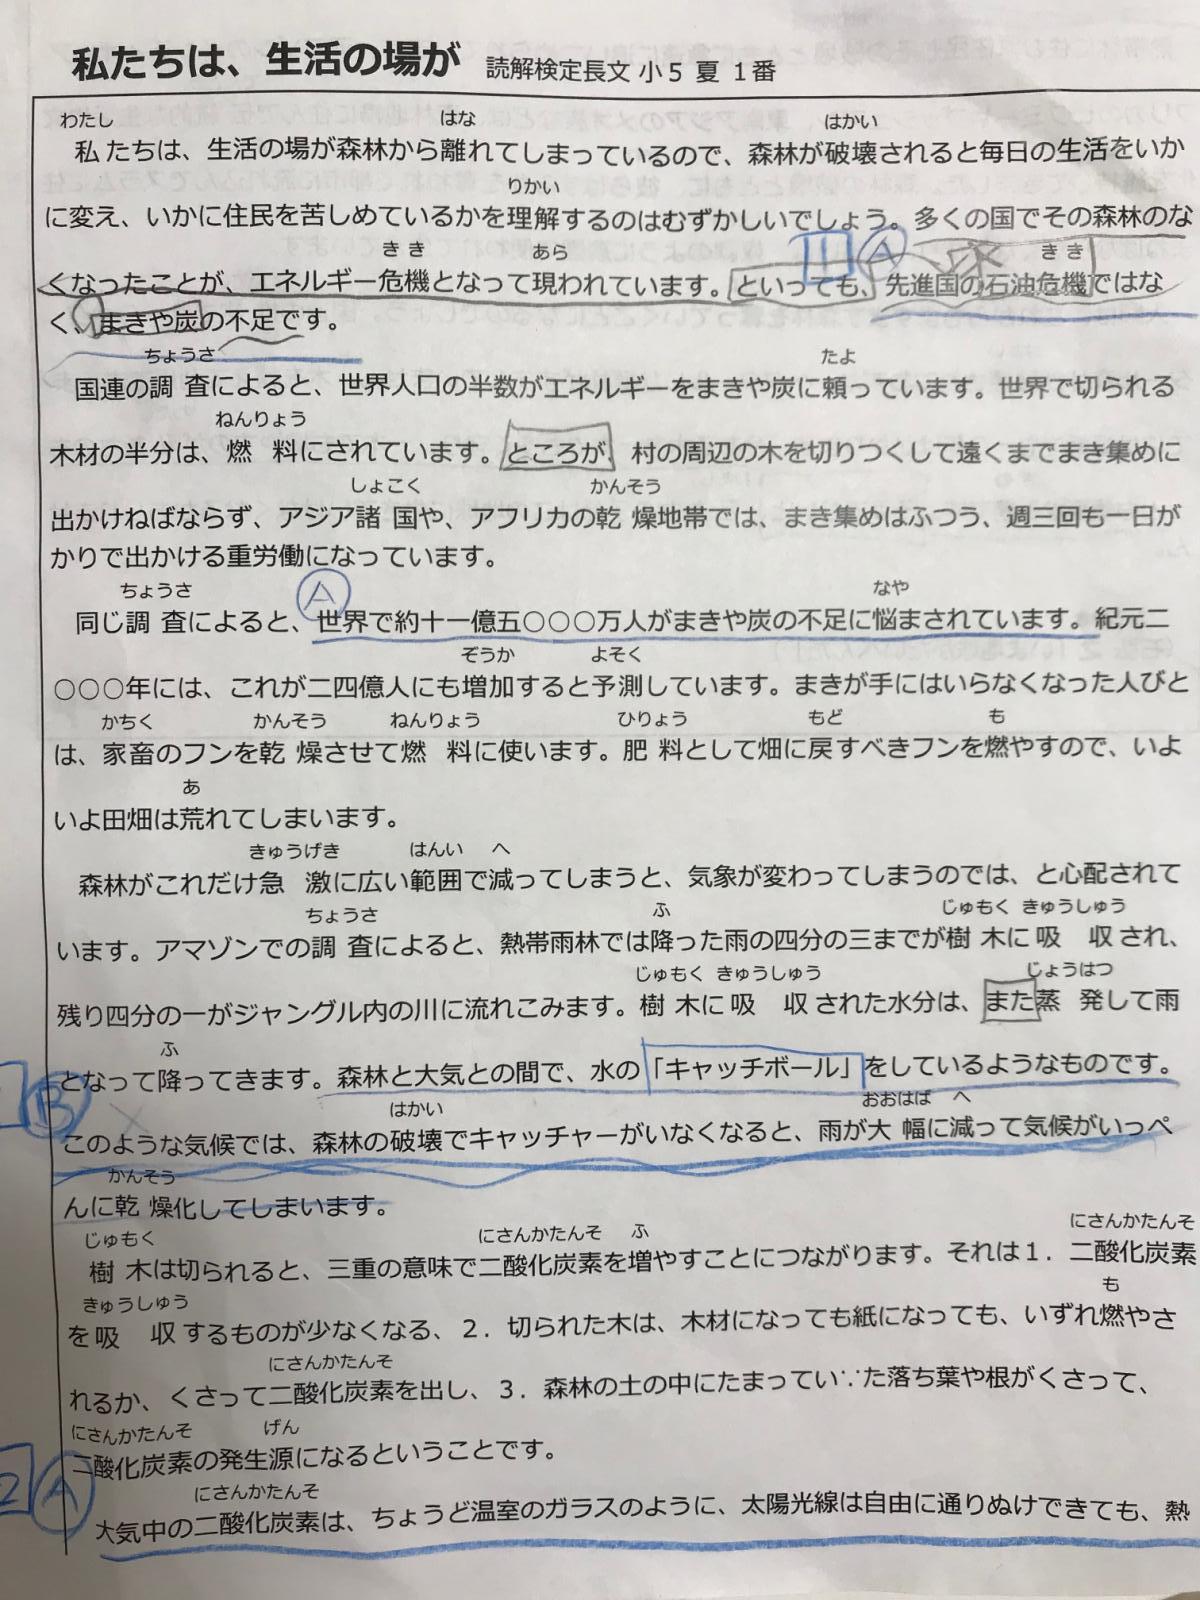 私たちは、生活の場が 読解検定長文 小5 夏 1番
わたし はな はかい
私たちは、生活の場が森林から離れてしまっているので、森林が破壊されると毎日の生活をいか
りかい
に変え、いかに住民を苦しめているかを理解するのはむずかしいでしょう。多くの国でその森林のな
きき あら きき
くなったことが、エネルギー危機となって現われています。といっても、先進国の石油危機ではな
く、まきや炭の不足です。
ちょうさ たよ
国連の調査によると、世界人口の半数がエネルギーをまきや炭に頼っています。世界で切られる
ねんりょう
木材の半分は、燃料にされています。ところが、村の周辺の木を切りつくして遠くまでまき集めに
しょこく かんそう
出かけねばならず、アジア諸国や、アフリカの乾燥地帯では、まき集めはふつう、週三回も一日が
かりで出かける重労働になっています。
A
ちょうさ なや
同じ調査によると、世界で約十一億五〇〇〇万人がまきや炭の不足に悩まされています。紀元二
ぞうか よそく
〇〇〇年には、これが二四億人にも増加すると予測しています。まきが手にはいらなくなった人びと
かちく かんそう ねんりょう ひりょう もど も
は、家畜のフンを乾燥させて燃料に使います。肥料として畑に戻すべきフンを燃やすので、いよ
あ
いよ田畑は荒れてしまいます。
きゅうげき はんい へ
森林がこれだけ急激に広い範囲で減ってしまうと、気象が変わってしまうのでは、と心配されて
ちょうさ ふ じゅもく きゅうしゅう
います。アマゾンでの調査によると、熱帯雨林では降った雨の四分の三までが樹木に吸収され、
じゅもく きゅうしゅう じょうはつ
残り四分の一がジャングル内の川に流れこみます。樹木に吸収された水分は、また蒸発して雨
ふ
となって降ってきます。森林と大気との間で、水の「キャッチボール」をしているようなものです。
B
はかい おおはば へ
このような気候では、森林の破壊でキャッチャーがいなくなると、雨が大幅に減って気候がいっぺ
かんそう
んに乾燥化してしまいます。
じゅもく にさんかたんそ ふ にさんかたんそ
樹木は切られると、三重の意味で二酸化炭素を増やすことにつながります。それは1．二酸化炭素
きゅうしゅう も
を吸収するものが少なくなる、2．切られた木は、木材になっても紙になっても、いずれ燃やさ
にさんかたんそ
れるか、くさって二酸化炭素を出し、3．森林の土の中にたまってい∵た落ち葉や根がくさって、
にさんかたんそ げん
二酸化炭素の発生源になるということです。
2 A
にさんかたんそ
大気中の二酸化炭素は、ちょうど温室のガラスのように、太陽光線は自由に通りぬけできても、熱